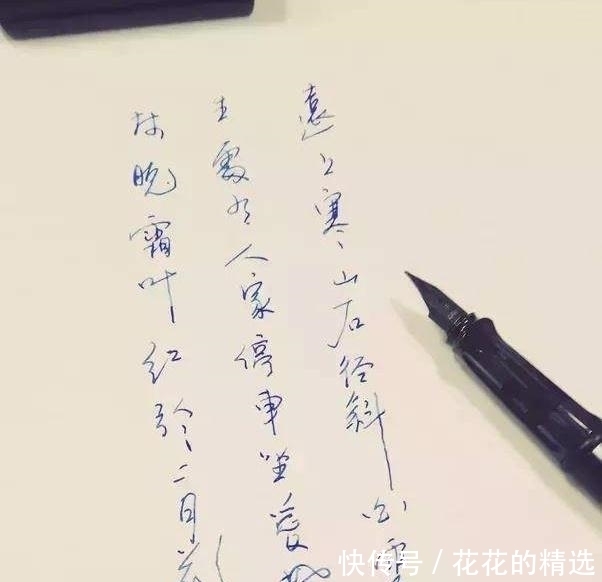 遠上寒山石径斜白雲
生處有人家停車坐愛
林晚霜叶红於二月花
快传号 / 花花的精选